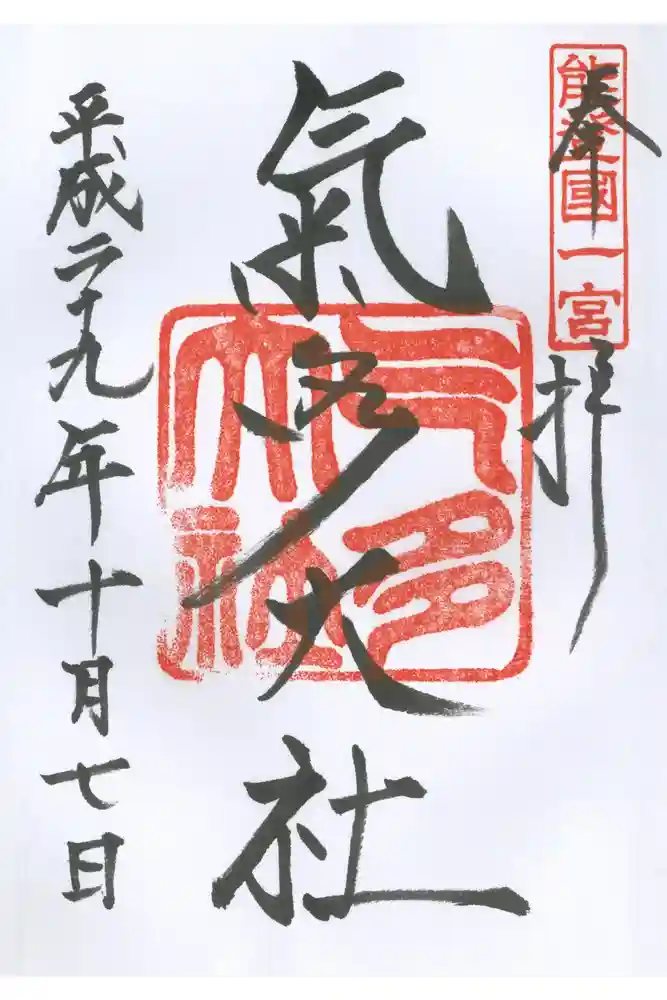 奉拝
能登國一宮
氣多大社
氣多大社
平成二十九年十月七日